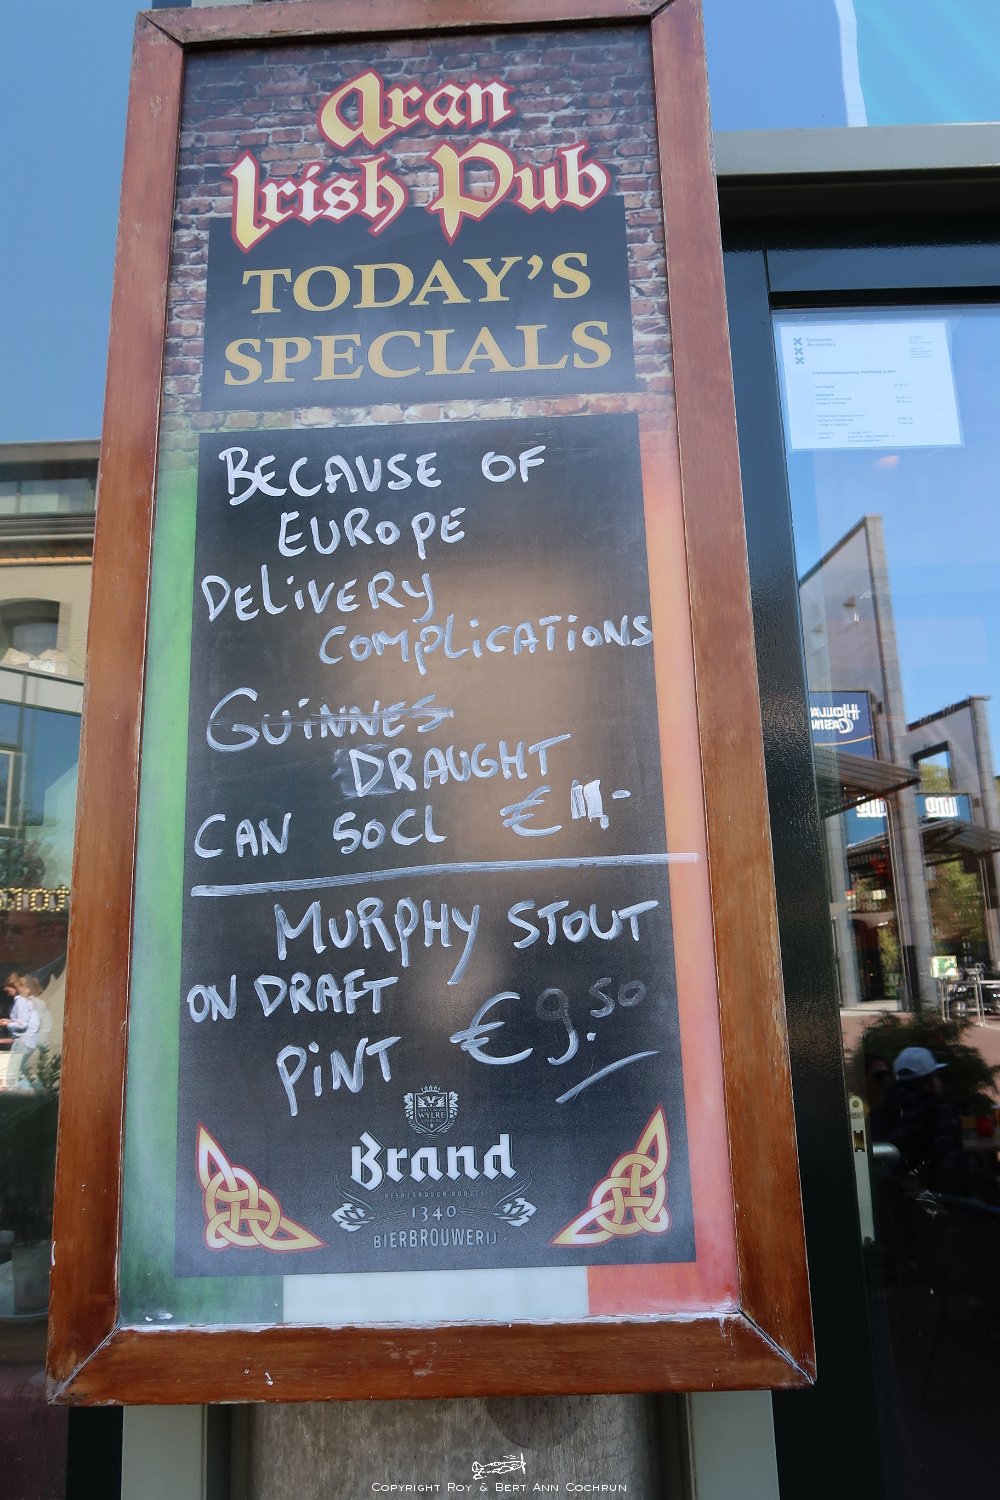 Aran
Irish Pub
TODAY'S
SPECIALS
BECAUSE OF
EUROPE
DELiVERY
COMPLiCATiONS
GUiNNES
DRAUGHT
CAN 50CL €
MURPHY STOUT
ON DRAFT
PiNT €9.50
WYLRE
Brand
1340
BIERBROUWERIJ
Gemeente
Amsterdam
COPYRIGHT ROY & BERT ANN COCHRUN